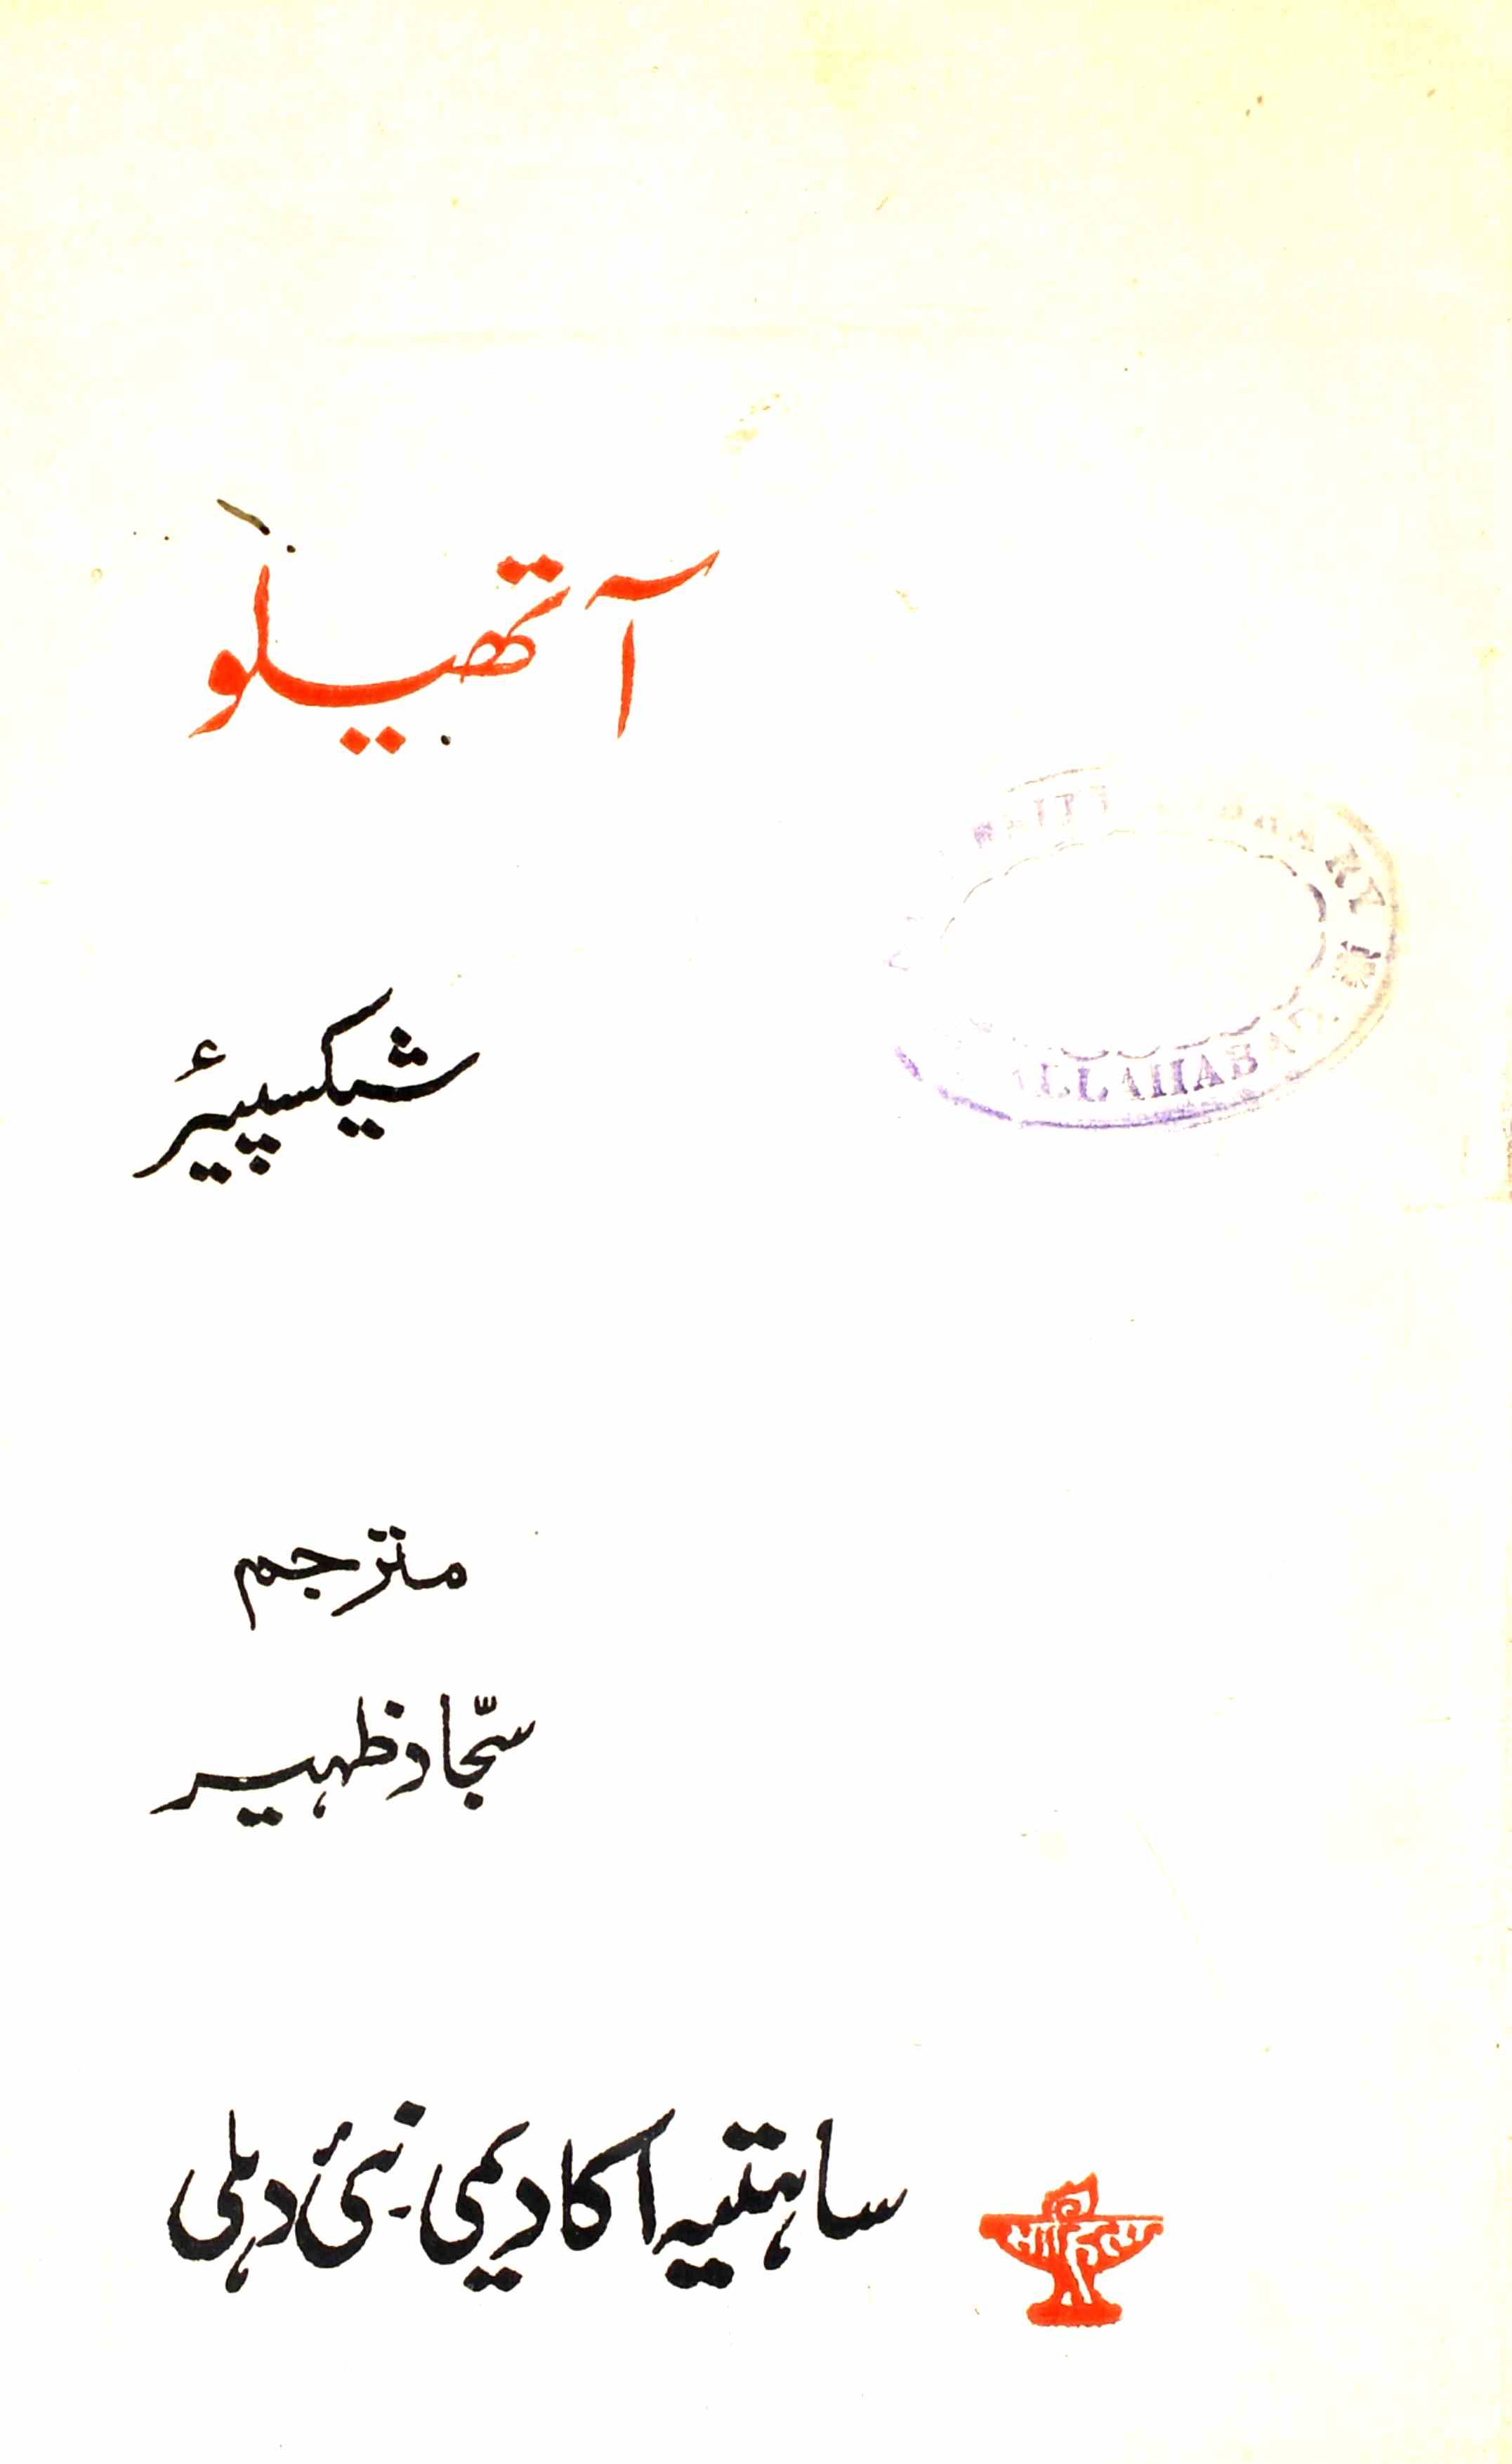 آتھیلو
شیکسپیئر
مترجم
سجّاد ظہیر
ساہتیہ اکادیمی۔ نئی دہلی